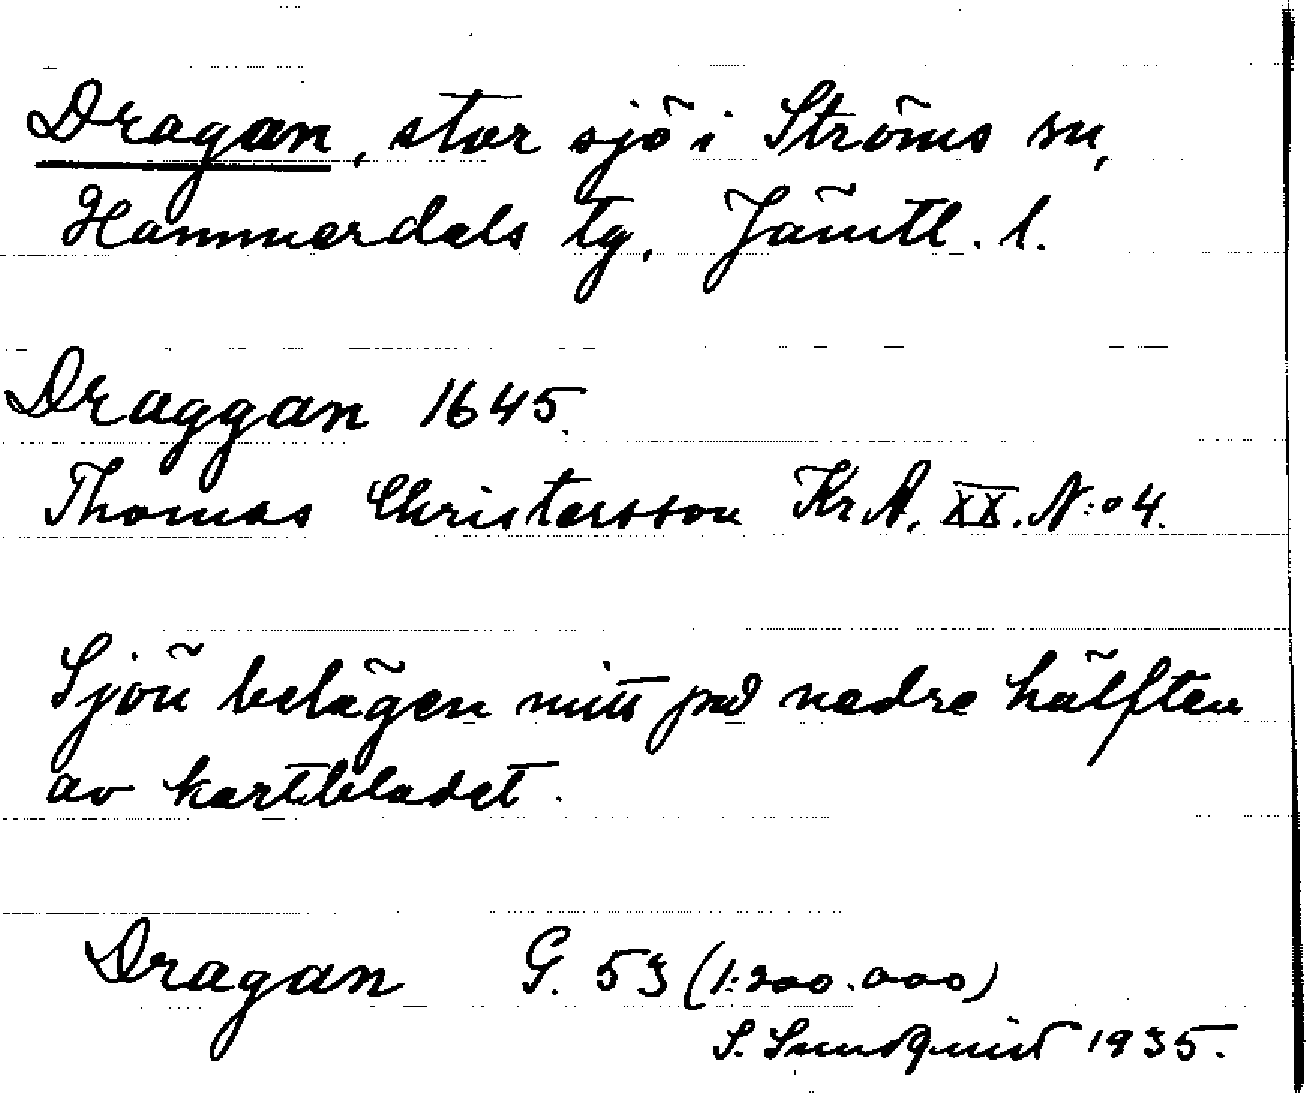 Dragan, stor sjö i Ströms sn,
Hammerdals tg. Jämtl. l.
Draggan 1645.
Thomas Christersson Kr A. XX. N:o 4.
Sjön belägen mitt på nedre hälften
av kartbladet.
Dragan G. 53 (1:200.000)
S. Sundquist 1935.